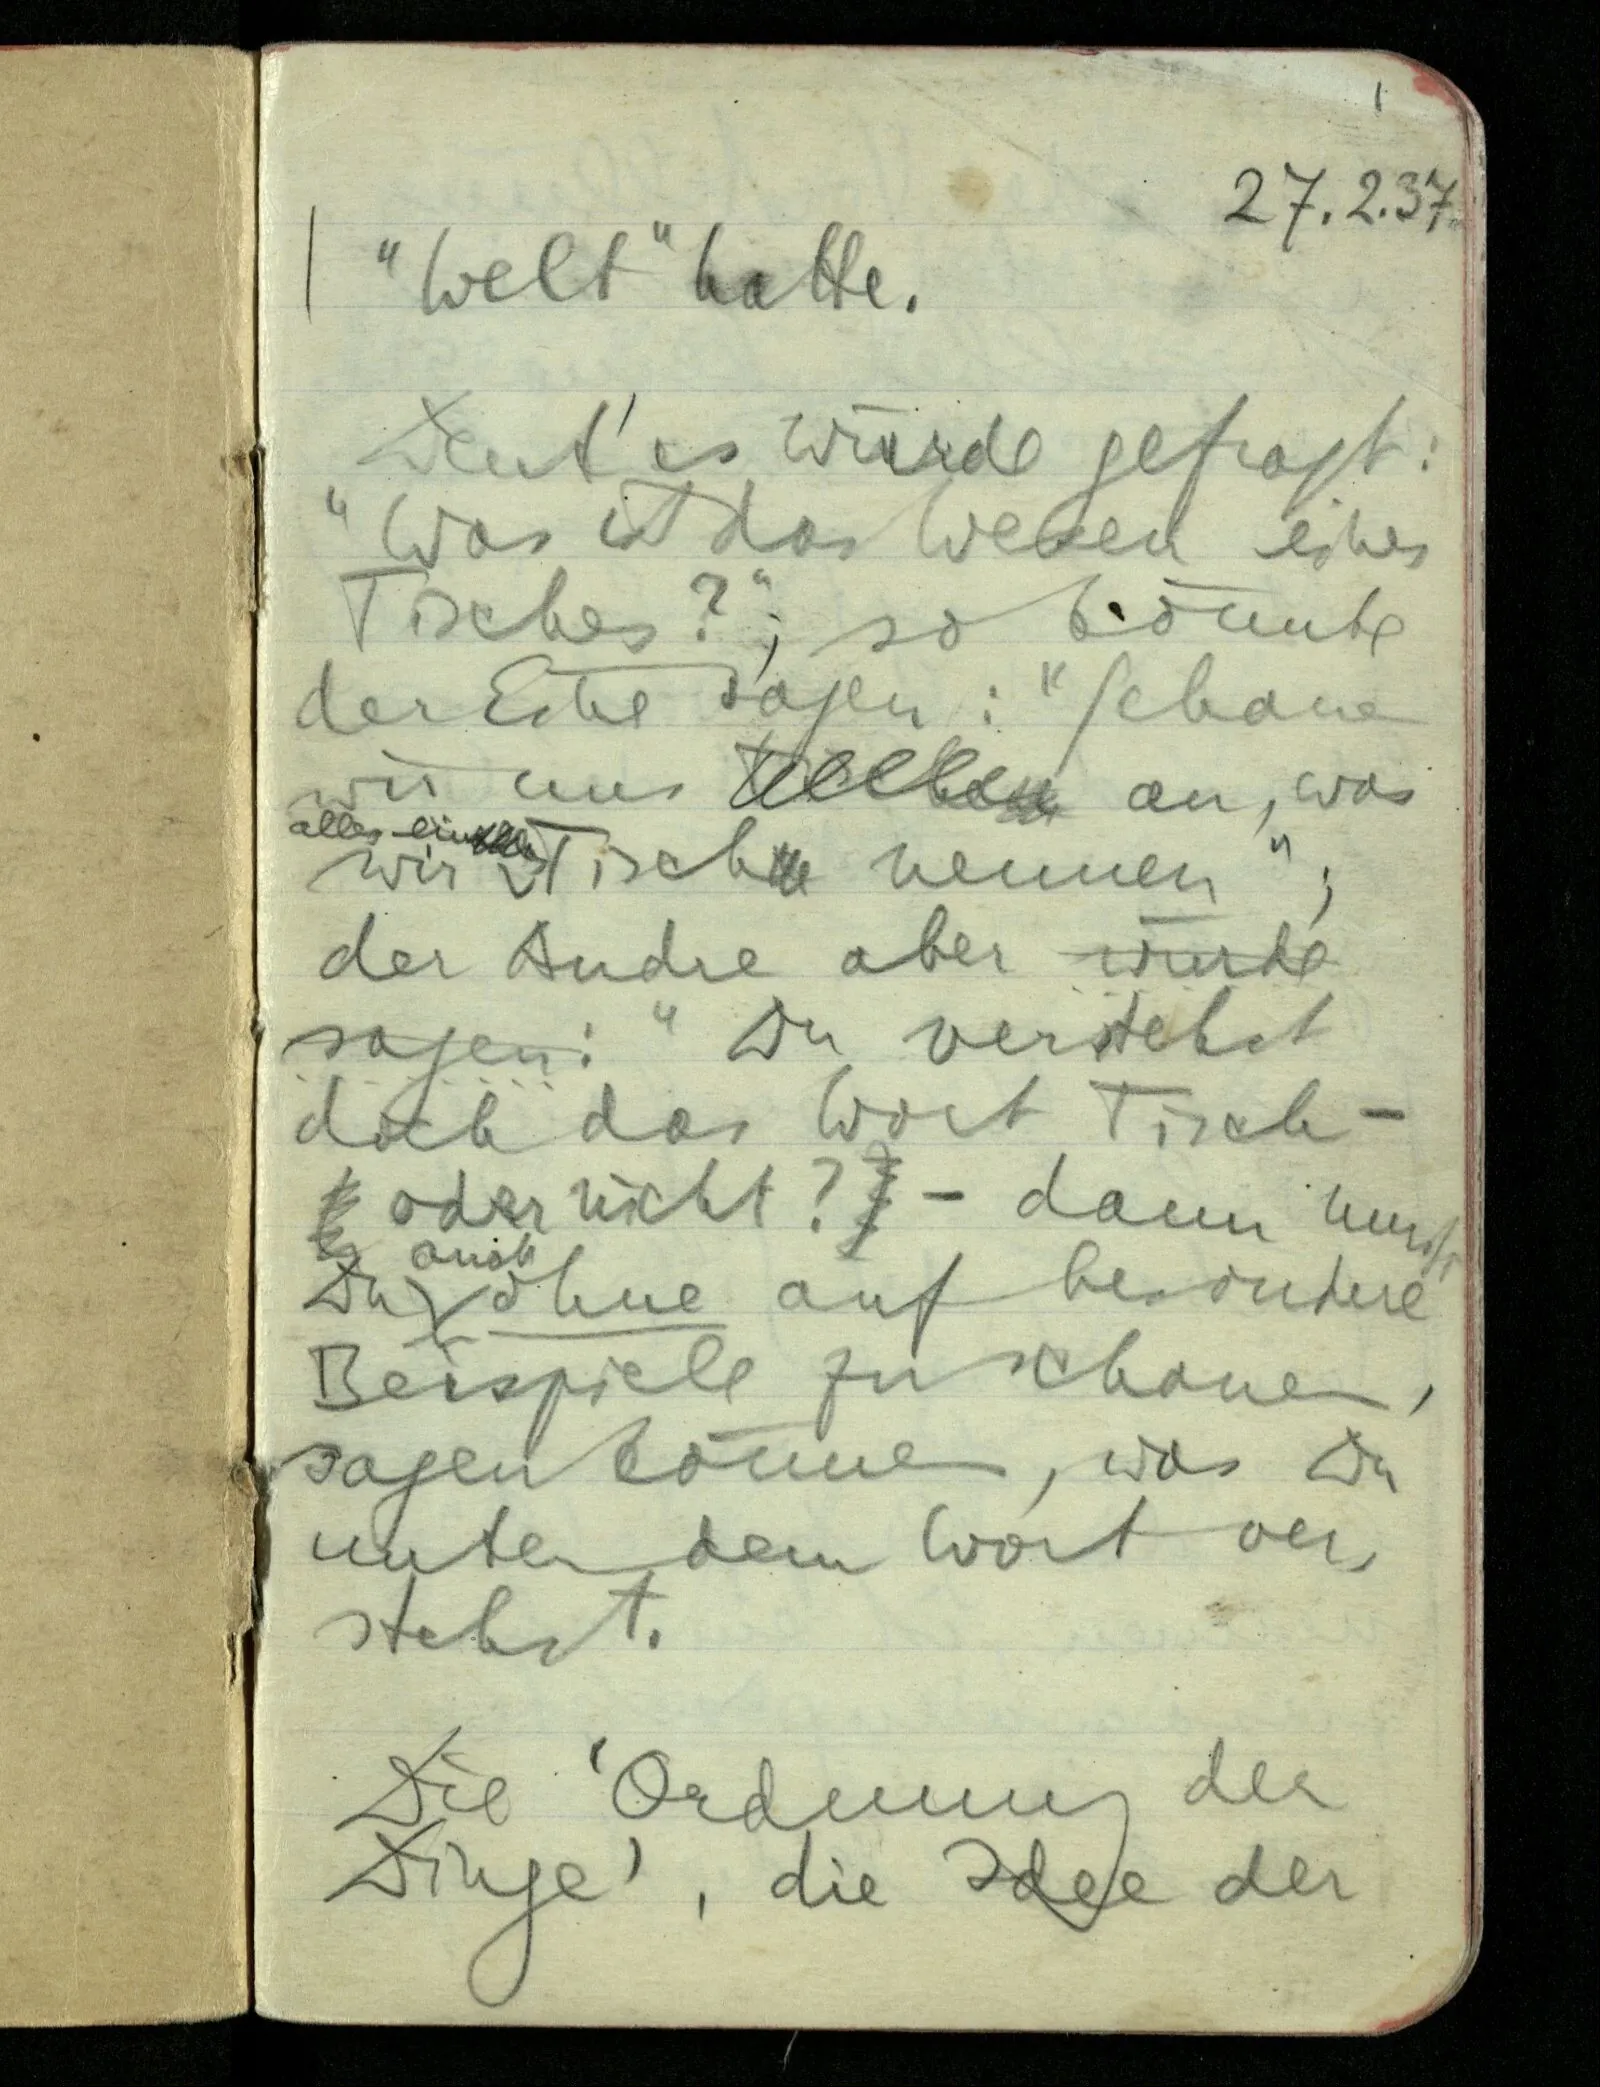 1
27.2.37.
"Welt" hatte.
Denk' es würde gefragt:
"Was ist das Wesen eines
Tisches?", so könnte
der Eine sagen: "Schauen
wir uns an, was
alles
wir Tisch nennen";
der Andre aber würde
sagen: "Du verstehst
doch das Wort Tisch –
oder nicht? – dann mußt
auch
Du ohne auf besondere
Beispiele zu schauen,
sagen können, was Du
unter dem Wort ver
stehst.
Die 'Ordnung der
Dinge', die Idee der